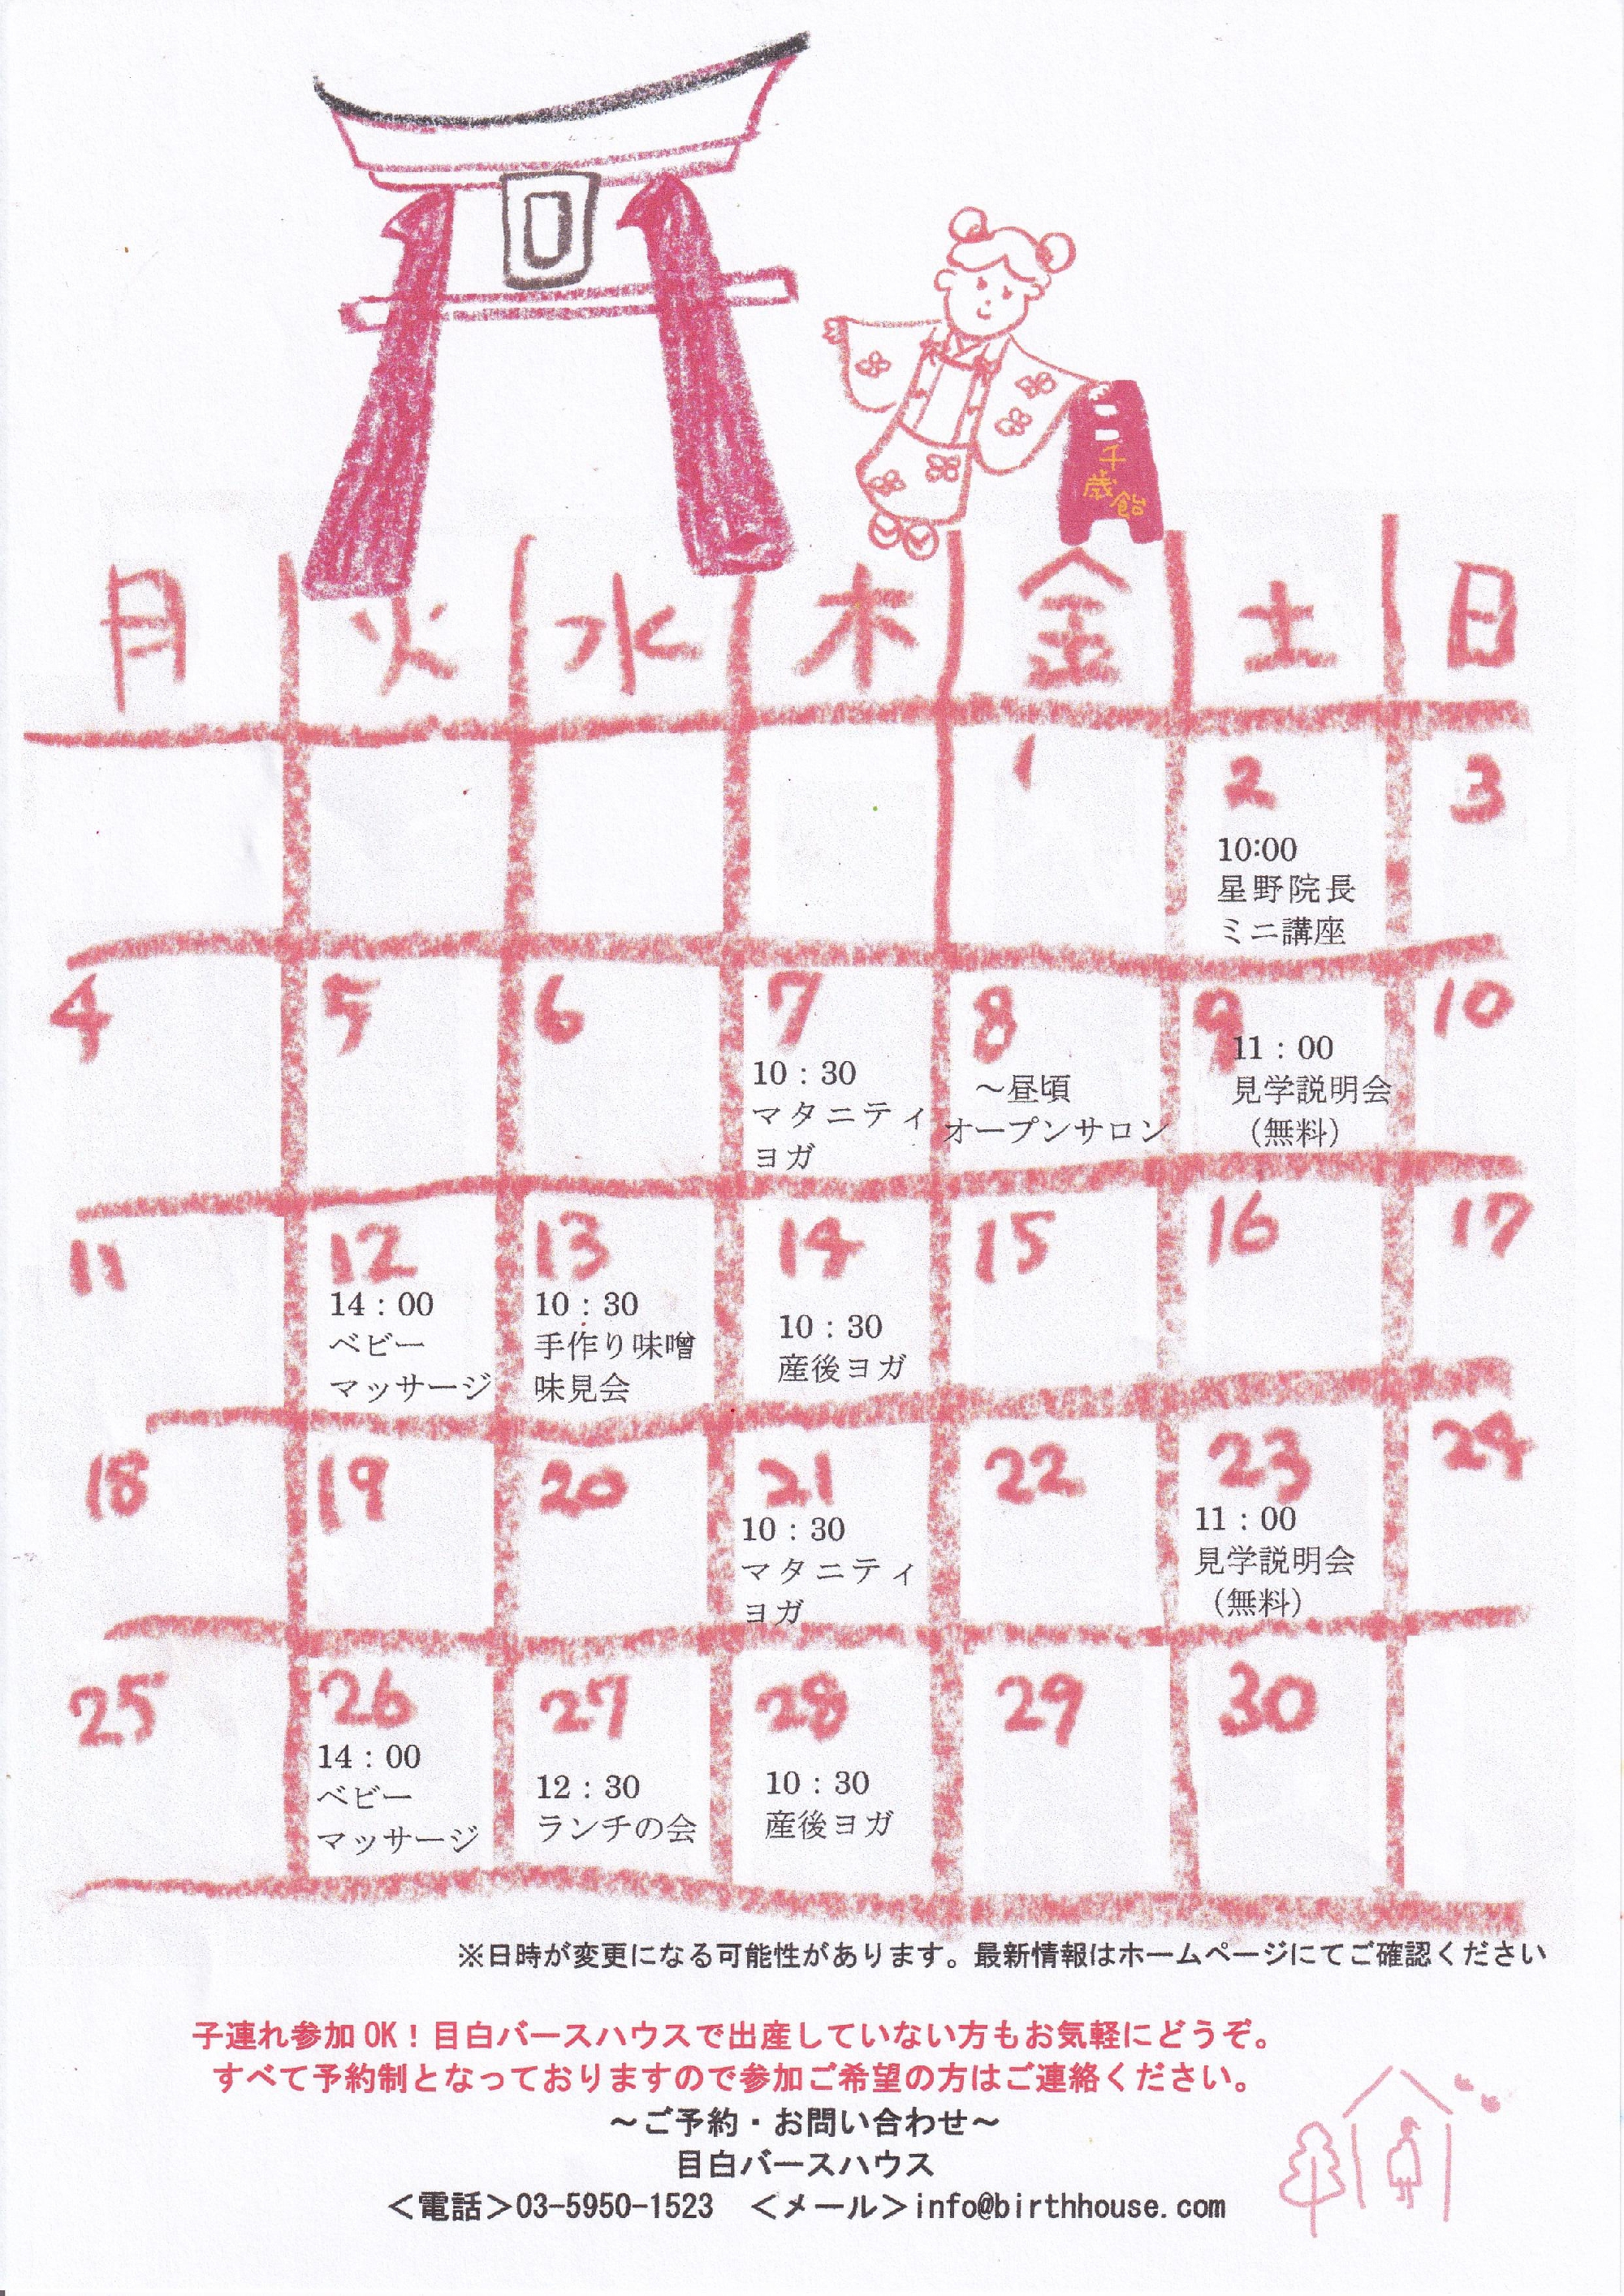 千
歳
飴
月 火 水 木 金 土 日
1 2 3
10:00
星野院長
ミニ講座
4 5 6 7 8 9 10
10：30
マタニティ
ヨガ
～昼頃
オープンサロン
11：00
見学説明会
（無料）
11 12 13 14 15 16 17
14：00
ベビー
マッサージ
10：30
手作り味噌
味見会
10：30
産後ヨガ
18 19 20 21 22 23 24
10：30
マタニティ
ヨガ
11：00
見学説明会
（無料）
25 26 27 28 29 30
14：00
ベビー
マッサージ
12：30
ランチの会
10：30
産後ヨガ
※日時が変更になる可能性があります。最新情報はホームページにてご確認ください
子連れ参加OK！目白バースハウスで出産していない方もお気軽にどうぞ。
すべて予約制となっておりますので参加ご希望の方はご連絡ください。
～ご予約・お問い合わせ～
目白バースハウス
＜電話＞03-5950-1523　＜メール＞info@birthhouse.com